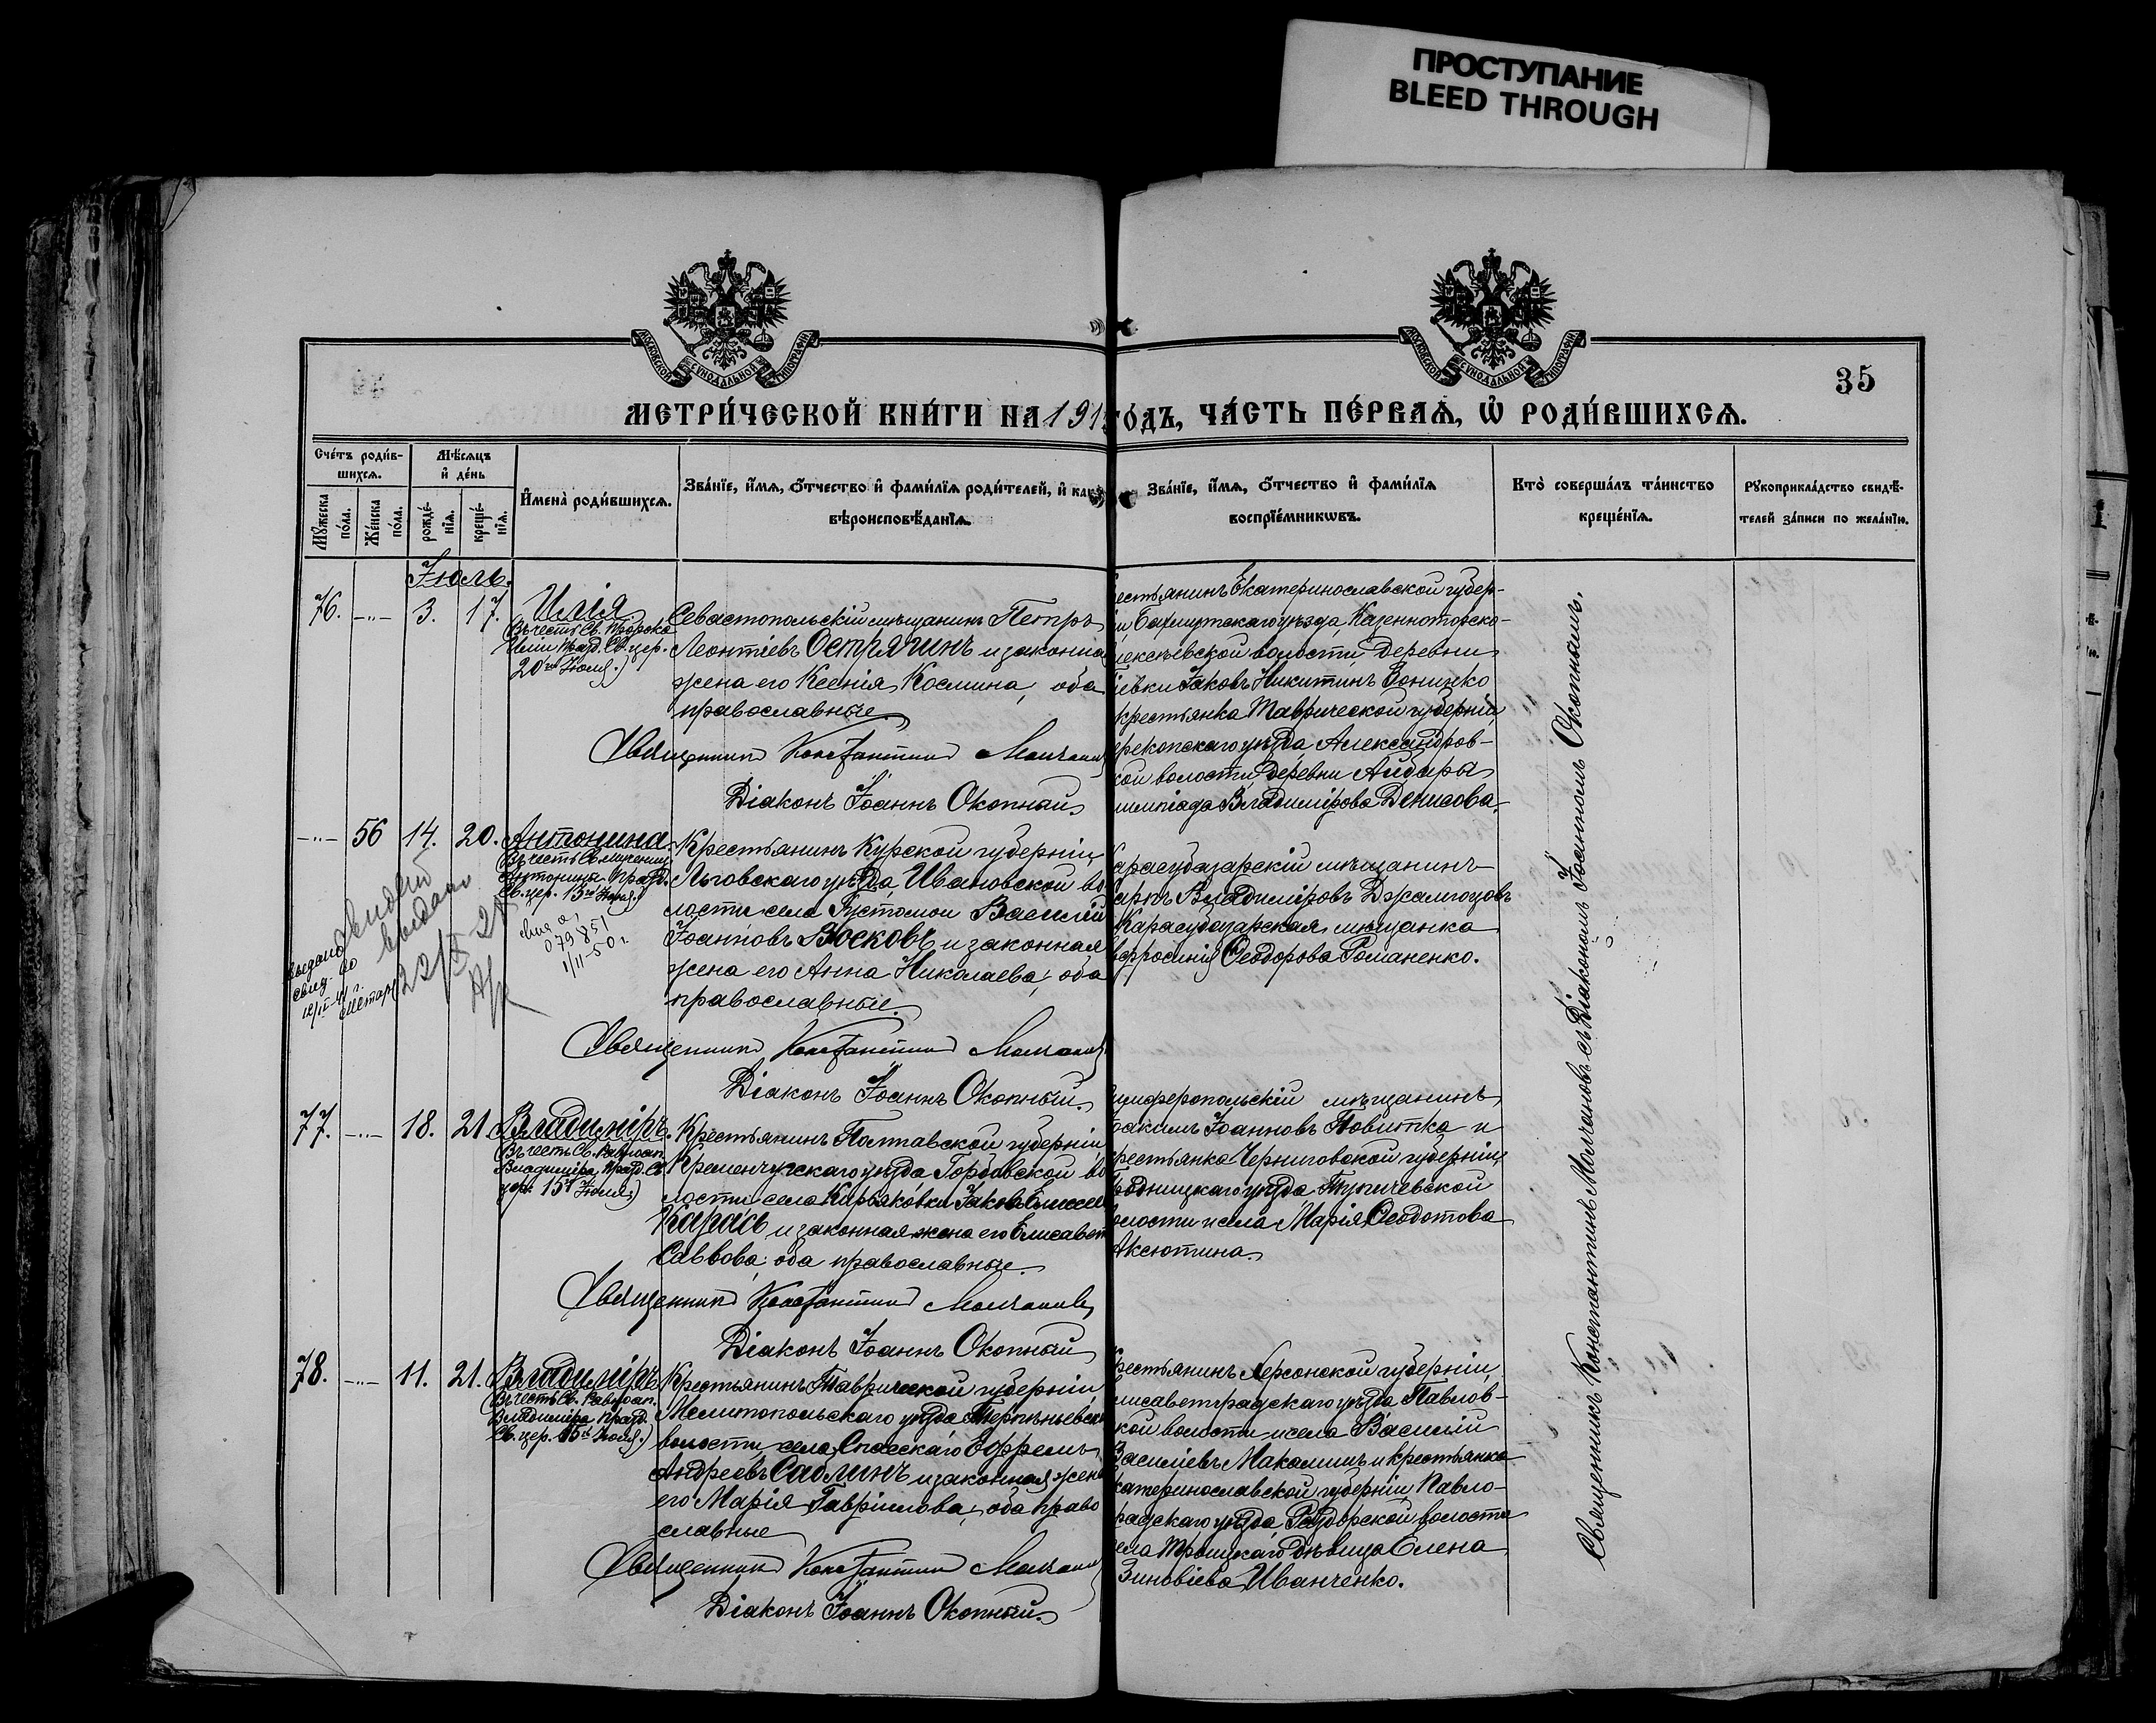 ПРОСТУПАНИЕ
BLEED THROUGH
МОСКОВСКОЙ СѴНОДАЛЬНОЙ ТИПОГРАФІИ
МОСКОВСКОЙ СѴНОДАЛЬНОЙ ТИПОГРАФІИ
35
МЕТРИ́ЧЕСКОЙ КНИ́ГИ НА 191 ГО́ДЪ, ЧА́СТЬ ПЕ́РВАѦ, Ѡ҆ РОДИ́ВШИХСѦ.
Сче́тъ роди́в-
шихсѧ.
Мѣ́сѧцъ
и҆ де́нь
Мꙋ́жеска по́ла.
Же́нска по́ла.
рожде́-нїѧ.
креще́-нїѧ.
И҆мена̀ роди́вшихсѧ.
Зва́нїе, и҆́мѧ, ѻ҆́тчество и҆ фами́лїѧ роди́телей, и҆ как
вѣроисповѣ́данїѧ.
Зва́нїе, и҆́мѧ, ѻ҆́тчество и҆ фами́лїѧ
воспрїе́мникѡвъ.
Кто̀ соверша́лъ та́инство
креще́нїѧ.
Рꙋкоприкла́дство свидѣ́-
телей за́писи по жела́нїю.
Іюль.
76. —"— 3. 17. Илія
(Въ честь Св. Пророка
Иліи празд. Св. цер.
20го Іюля.)
Севастопольскій мѣщанинъ Петръ
Леонтіевъ Острягинъ и законна
жена его Ксенія Космина, оба
православные.
Священникъ Константинъ Молчанов
Діаконъ Іоаннъ Окопный
естьянинъ Екатеринославской губер-
и Бахмутскаго уѣзда, Казенноторско-
лексѣевской волости, деревни
іевки Іаковъ Никитинъ Донцико
крестьянка Таврической губерніи
ерекопскаго уѣзда Александров-
кой волости деревни Айбары
импіада Владимірова Денисова.
—"— 56 14. 20. Антонина.
(Въ честь Св. мучениц.
Антонина празд.
Св. цер. 13го Іюля.)
Крестьянинъ Курской губерніи
Льговскаго уѣзда Ивановской во
лости села Густомои Василій
Іоанновъ Восковъ и законная
жена его Анна Николаева, оба
православные.
Священникъ Константинъ Молчанов
Діаконъ Іоаннъ Окопный.
арасубазарскій мѣщанинъ
Владиміровъ Джамгоцовъ
Карасубазарская мѣщанка
вфросинія Ѳеодорова Романенко.
выдано
079851
1/II-50 г.
77. —"— 18. 21. Владиміръ.
(Въ честь Св. Равноап.
Владиміра празд. Св.
цер. 15го Іюля.)
Крестьянинъ Полтавской губерніи
Кременчугскаго уѣзда Горбавской во
лости села Кирьяковки Іаковъ
Карась и законная жена его Елисавет
Саввова, оба православные.
Священникъ Константинъ Молчановъ
Діаконъ Іоаннъ Окопный
имферопольскій мѣщанинъ
оакимъ Іоанновъ Повитка и
рестьянка Черниговской губерніи
Городницкаго уѣзда Тупичевской
олости и села Марія Ѳеодотова
Аксютина.
78. —"— 11. 21. Владиміръ
(Въ честь Св. Равноап.
Владиміра празд.
Св. цер. 15го Іюля.)
Крестьянинъ Таврической губерніи
Мелитопольскаго уѣзда Терпѣньевско
волости, села Спасскаго Ефремъ
Андреевъ Саблинъ и законная жена
его Марія Гавріилова, оба право
славные
Священникъ Константинъ Молчанов
Діаконъ Іоаннъ Окопный.
рестьянинъ Херсонской губерніи
лисаветградскаго уѣзда Павлов-
кой волости и села Василій
Василіевъ Макалишъ и крестьянка
катеринославской губерніи Павло-
радскаго уѣзда, Раздорской волости
ела Троицкаго дѣвица Елена
Зиновіева Иванченко.
Священникъ Константинъ Молчановъ съ Діакономъ Іоанномъ Окопнымъ.